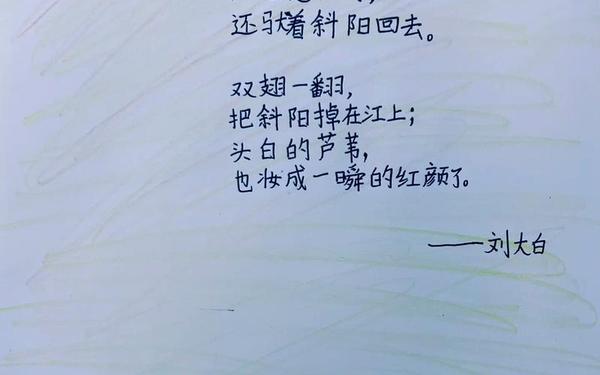 还驮着斜阳回去。
双翅一翻，
把斜阳掉在江上；
头白的芦苇，
也妆成一瞬的红颜了。
——刘大白